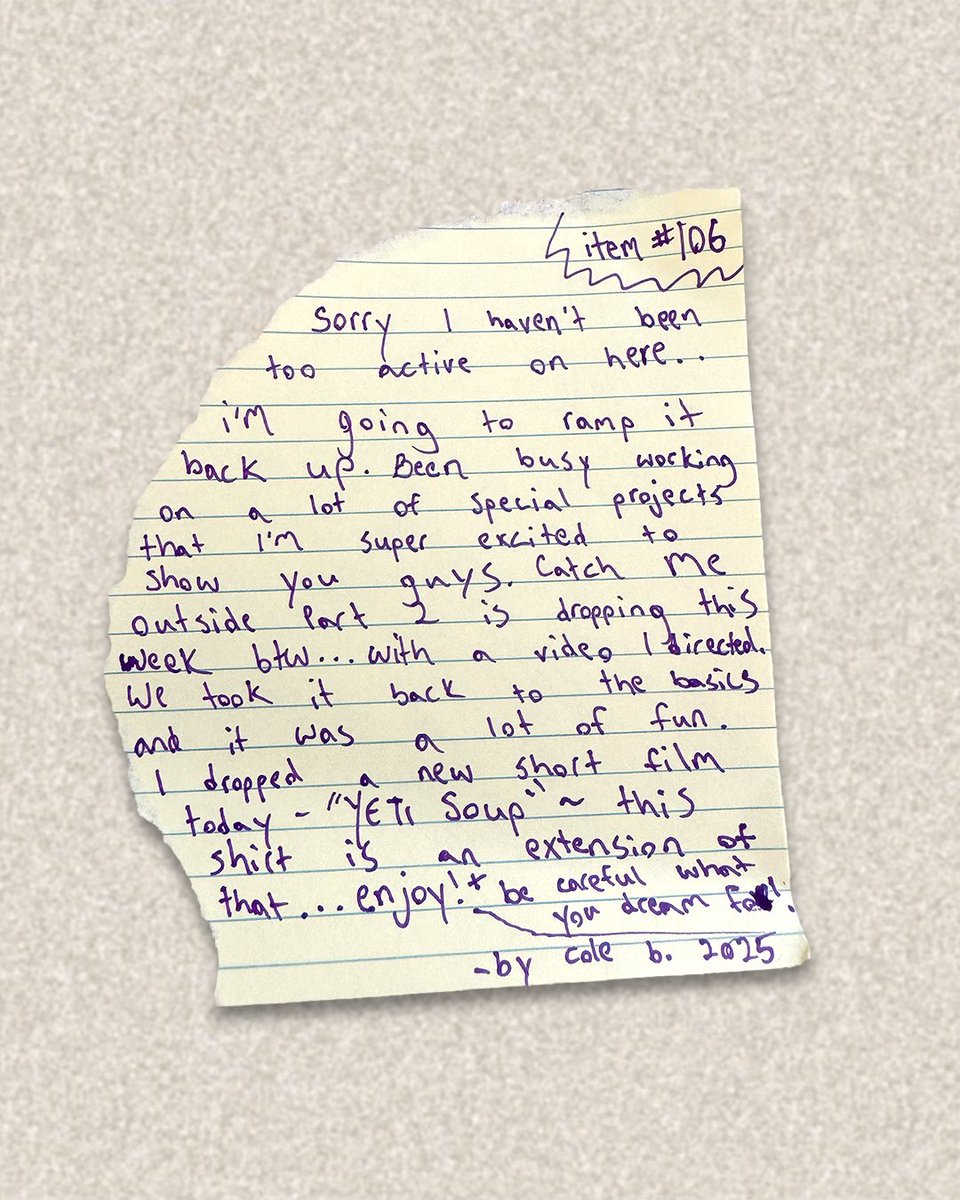 item #106
Sorry I haven't been
too active on here..
i'm going to ramp it
back up. Been busy working
on a lot of special projects
that i'm super excited to
show you guys. Catch me
outside Part 2 is dropping this
week btw...with a video I directed.
We took it back to the basics
and it was a lot of fun.
I dropped a new short film
today - "YETI Soup" ~ this
shirt is an extension of
that...enjoy!* be careful what
you dream for!
-by cole b. 2025